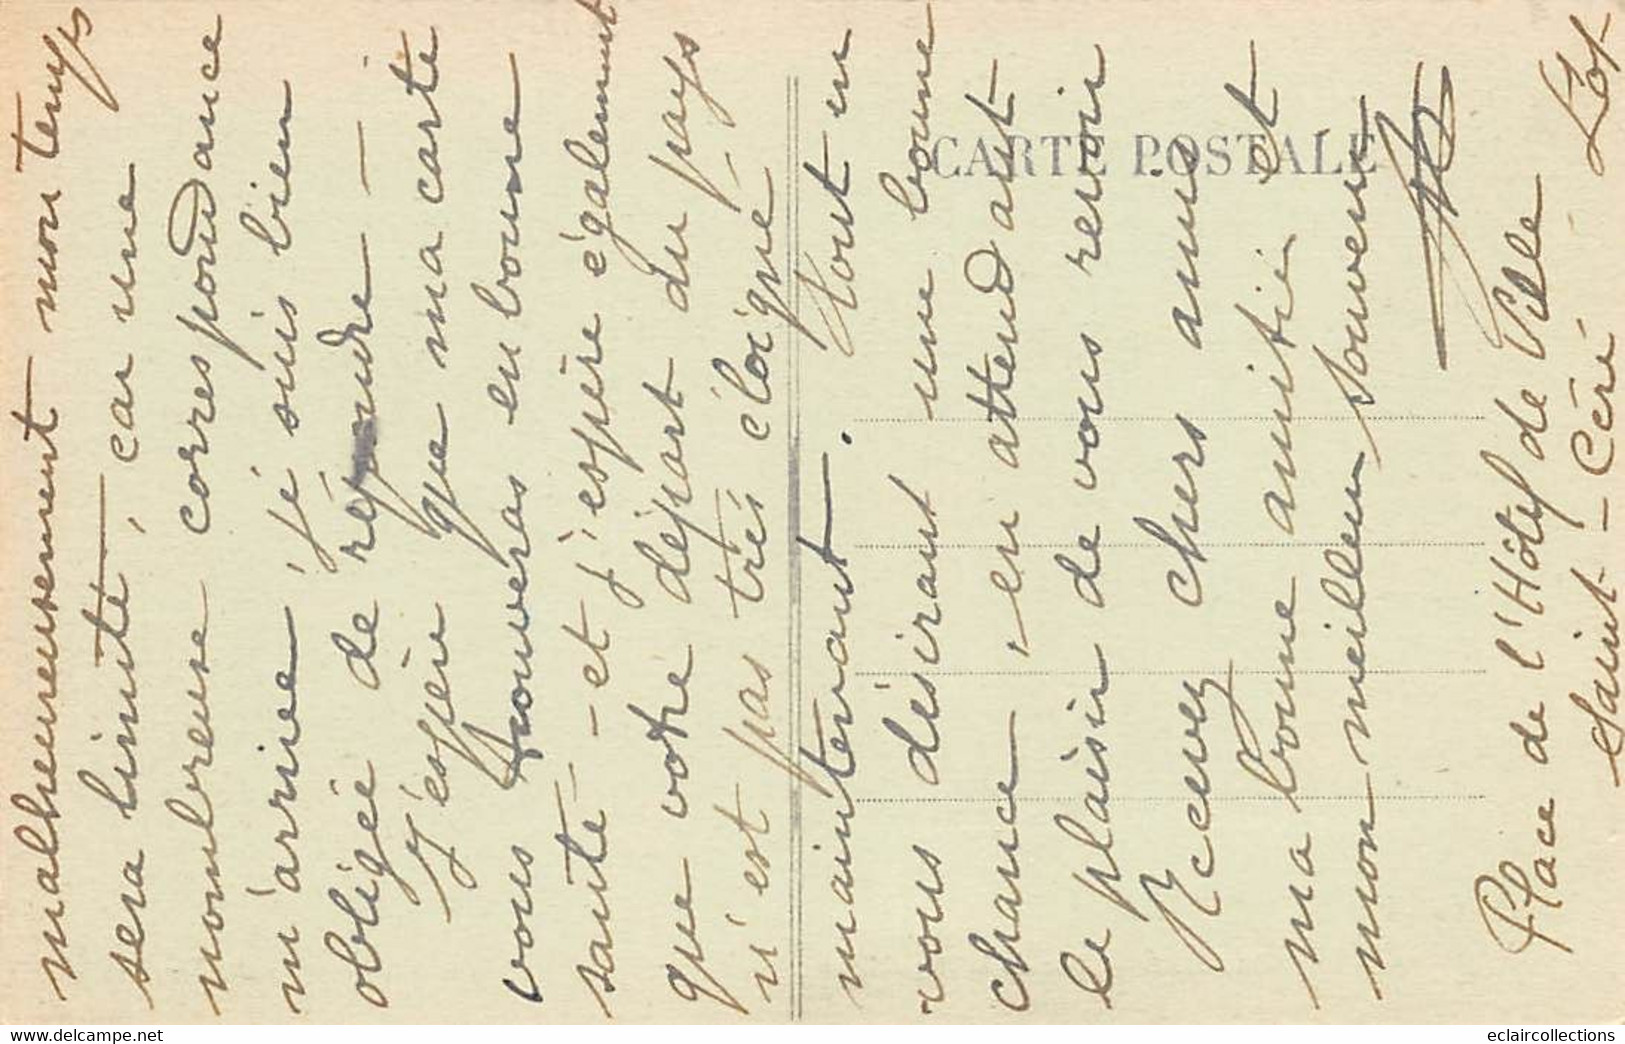 malheureusement mon temps
sera limité, car une
nombreuse correspondance
m'arrive, je suis bien
obligée de répondre —
J'espère que ma carte
vous trouveras en bonne
santé — et j'espère également
que votre départ du pays
n'est pas très éloigné
maintenant. Tout en
vous désirant une bonne
chance, en attendant
le plaisir de vous revoir
Recevez chers amis
ma bonne amitié et
mon meilleur souvenir
Place de l'Hôtel de Ville
Saint-Céré Lot
CARTE POSTALE
www.delcampe.net
eclaircollections